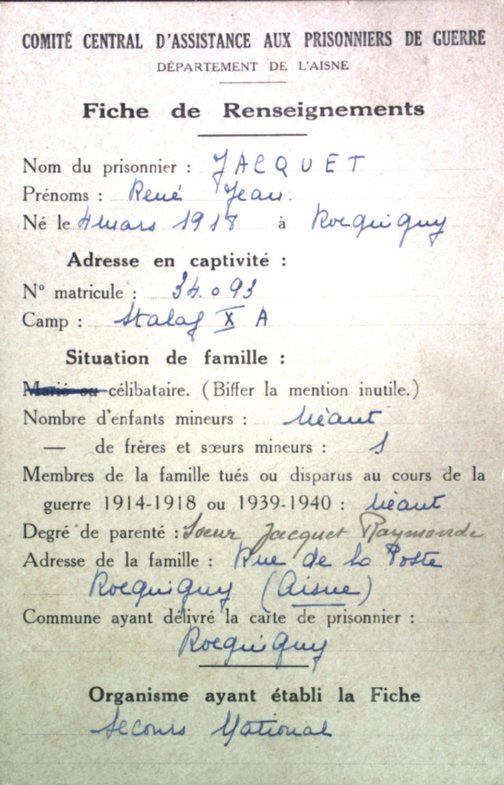 COMITÉ CENTRAL D'ASSISTANCE AUX PRISONNIERS DE GUERRE
DÉPARTEMENT DE L'AISNE
Fiche de Renseignements
Nom du prisonnier : JACQUET
Prénoms : René Jean.
Né le 4 mars 1918 à Rocquigny
Adresse en captivité :
N° matricule : 34.093
Camp : Stalag X A
Situation de famille :
Marié ou célibataire. (Biffer la mention inutile.)
Nombre d'enfants mineurs : Néant
— de frères et sœurs mineurs : 1
Membres de la famille tués ou disparus au cours de la
guerre 1914-1918 ou 1939-1940 : Néant
Degré de parenté : Soeur Jacquet Raymonde
Adresse de la famille : Rue de la Poste
Rocquigny (Aisne)
Commune ayant délivré la carte de prisonnier :
Rocquigny
Organisme ayant établi la Fiche
Secours National